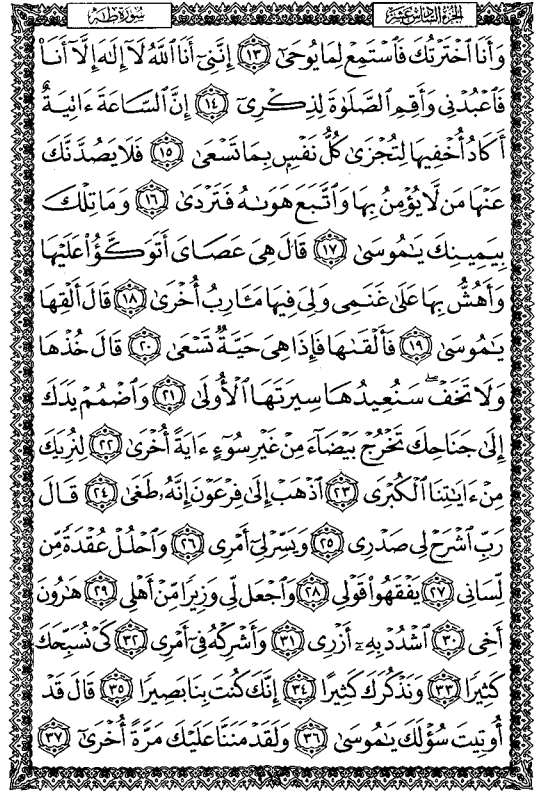 سُورَةُ طه الجُزءُ السَّادِسَ عَشَرَ
وَأَنَا ٱخْتَرْتُكَ فَٱسْتَمِعْ لِمَا يُوحَىٰٓ ١٣ إِنَّنِىٓ أَنَا ٱللَّهُ لَآ إِلَٰهَ إِلَّآ أَنَا۠
فَٱعْبُدْنِى وَأَقِمِ ٱلصَّلَوٰةَ لِذِكْرِىٓ ١٤ إِنَّ ٱلسَّاعَةَ ءَاتِيَةٌ
أَكَادُ أُخْفِيهَا لِتُجْزَىٰ كُلُّ نَفْسٍۭ بِمَا تَسْعَىٰ ١٥ فَلَا يَصُدَّنَّكَ
عَنْهَا مَن لَّا يُؤْمِنُ بِهَا وَٱتَّبَعَ هَوَىٰهُ فَتَرْدَىٰ ١٦ وَمَا تِلْكَ
بِيَمِينِكَ يَٰمُوسَىٰ ١٧ قَالَ هِىَ عَصَاىَ أَتَوَكَّؤُا۟ عَلَيْهَا
وَأَهُشُّ بِهَا عَلَىٰ غَنَمِى وَلِىَ فِيهَا مَـَٔارِبُ أُخْرَىٰ ١٨ قَالَ أَلْقِهَا
يَٰمُوسَىٰ ١٩ فَأَلْقَىٰهَا فَإِذَا هِىَ حَيَّةٌ تَسْعَىٰ ٢٠ قَالَ خُذْهَا
وَلَا تَخَفْ ۖ سَنُعِيدُهَا سِيرَتَهَا ٱلْأُولَىٰ ٢١ وَٱضْمُمْ يَدَكَ
إِلَىٰ جَنَاحِكَ تَخْرُجْ بَيْضَآءَ مِنْ غَيْرِ سُوٓءٍ ءَايَةً أُخْرَىٰ ٢٢ لِنُرِيَكَ
مِنْ ءَايَٰتِنَا ٱلْكُبْرَى ٢٣ ٱذْهَبْ إِلَىٰ فِرْعَوْنَ إِنَّهُۥ طَغَىٰ ٢٤ قَالَ
رَبِّ ٱشْرَحْ لِى صَدْرِى ٢٥ وَيَسِّرْ لِىٓ أَمْرِى ٢٦ وَٱحْلُلْ عُقْدَةً مِّن
لِّسَانِى ٢٧ يَفْقَهُوا۟ قَوْلِى ٢٨ وَٱجْعَل لِّى وَزِيرًا مِّنْ أَهْلِى ٢٩ هَٰرُونَ
أَخِى ٣٠ ٱشْدُدْ بِهِۦٓ أَزْرِى ٣١ وَأَشْرِكْهُ فِىٓ أَمْرِى ٣٢ كَىْ نُسَبِّحَكَ
كَثِيرًا ٣٣ وَنَذْكُرَكَ كَثِيرًا ٣٤ إِنَّكَ كُنتَ بِنَا بَصِيرًا ٣٥ قَالَ قَدْ
أُوتِيتَ سُؤْلَكَ يَٰمُوسَىٰ ٣٦ وَلَقَدْ مَنَنَّا عَلَيْكَ مَرَّةً أُخْرَىٰٓ ٣٧